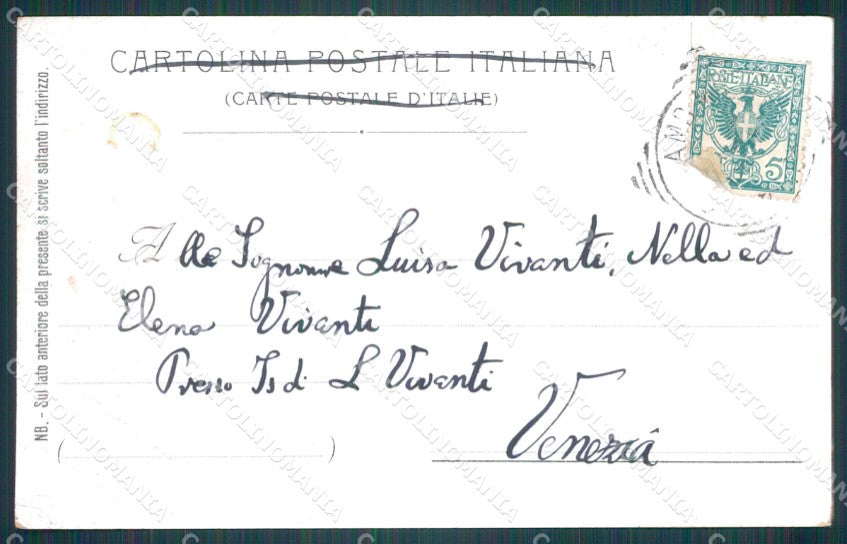 CARTOLINA POSTALE ITALIANA
(CARTE POSTALE D'ITALIE)
NB. - Sul lato anteriore della presente si scrive soltanto l'indirizzo.
POSTE ITALIANE
5
Alle Signorine Luisa Vivanti, Nella ed
Elena Vivanti
Presso Is di L Vivanti
Venezia
CARTOLINOMANIA